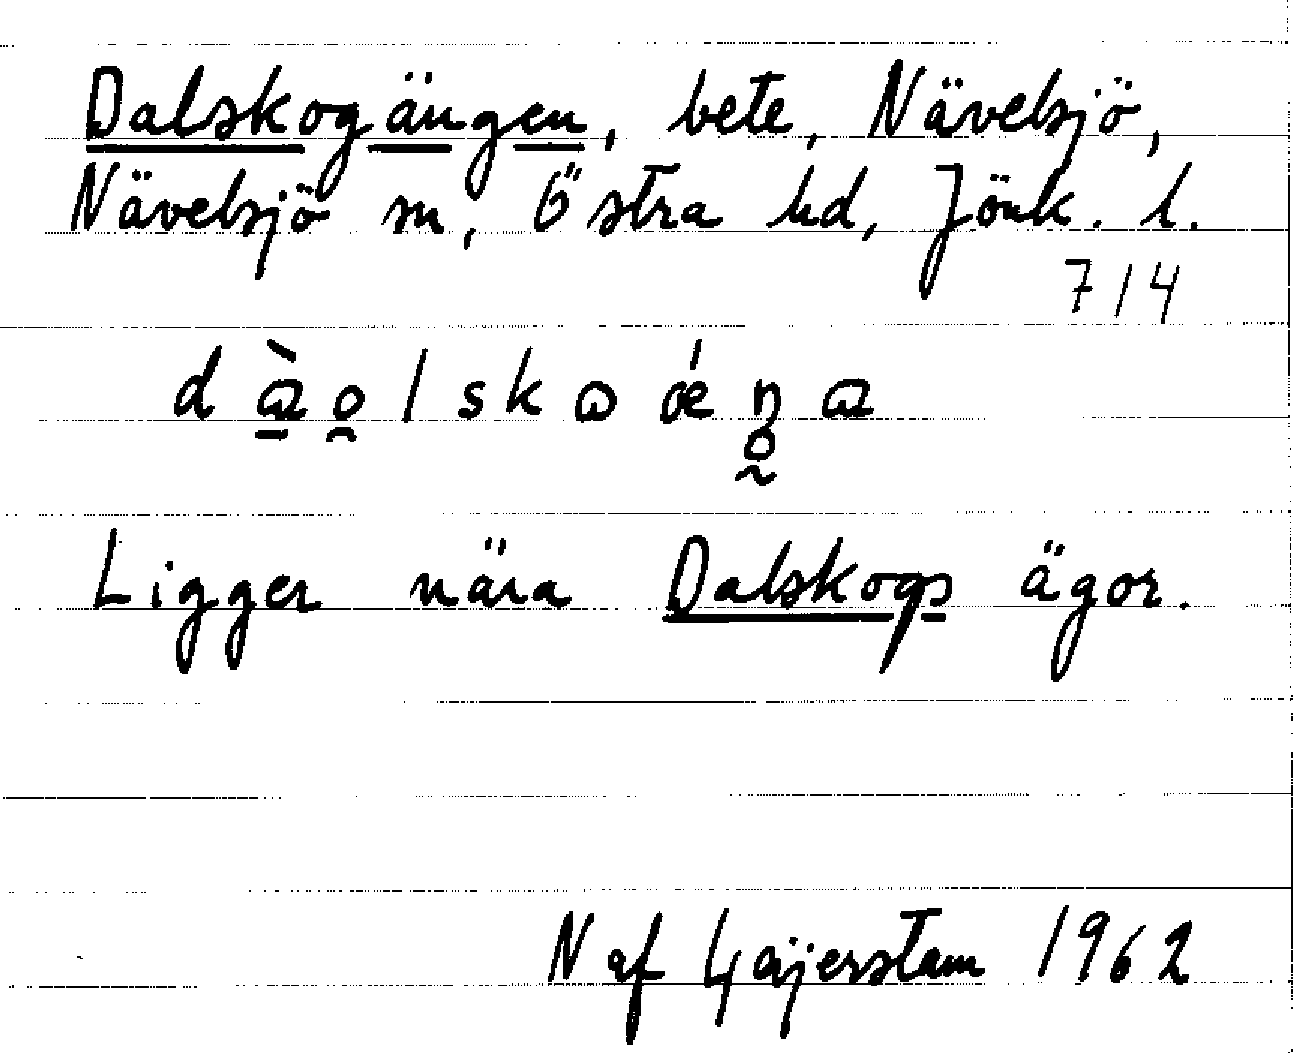 Dalskogängen, bete, Nävelsjö,
Nävelsjö sn, Östra hd, Jönk. l.
714
Ligger nära Dalskogs ägor.
N af Gejerstam 1962